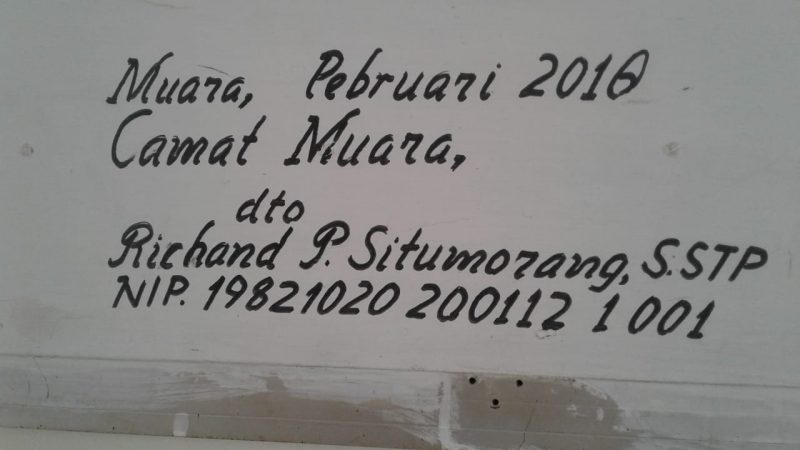 Muara, Pebruari 2016
Camat Muara,
dto
Richand P. Situmorang, S.STP
NIP. 19821020 200112 1 001